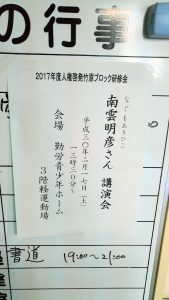 の行事
2017年度人権啓発竹原ブロック研修会
なぐもあきひこ
南雲明彦さん 講演会
平成三〇年二月一七日(土)
一三時三〇分~
会場 勤労青少年ホーム
3階軽運動場
書道 19:00~21:00